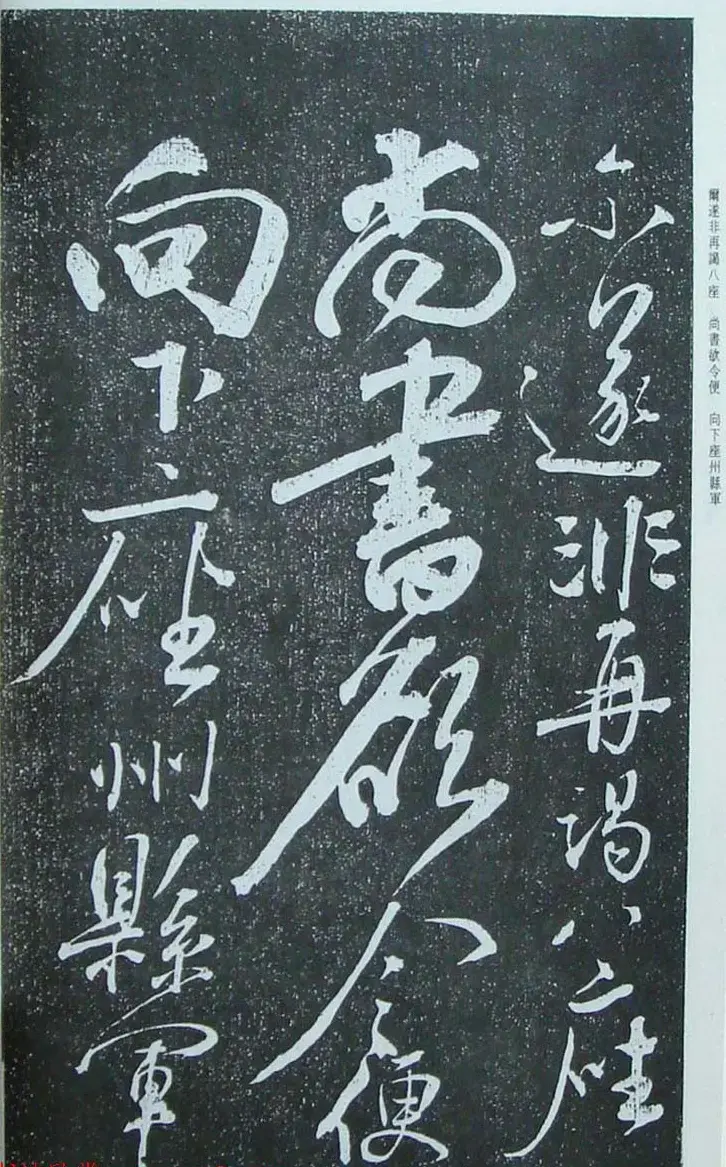 尔遂非再謁八座
尚書欲令便
向下座州縣軍
爾遂非再謁八座　尚書欲令便　向下座州縣軍